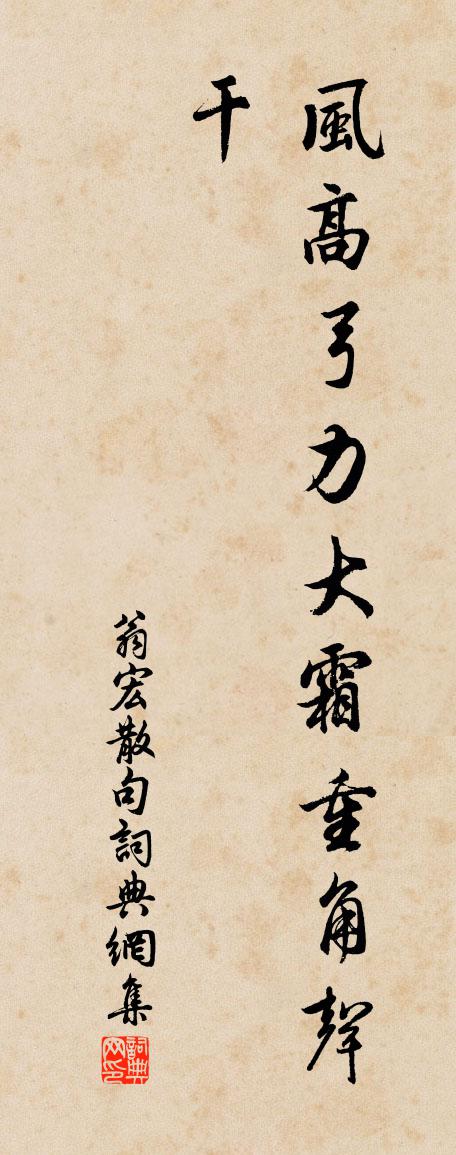 風高弓力大霜重角聲
干
翁宏散句詞典網集
詞典网印